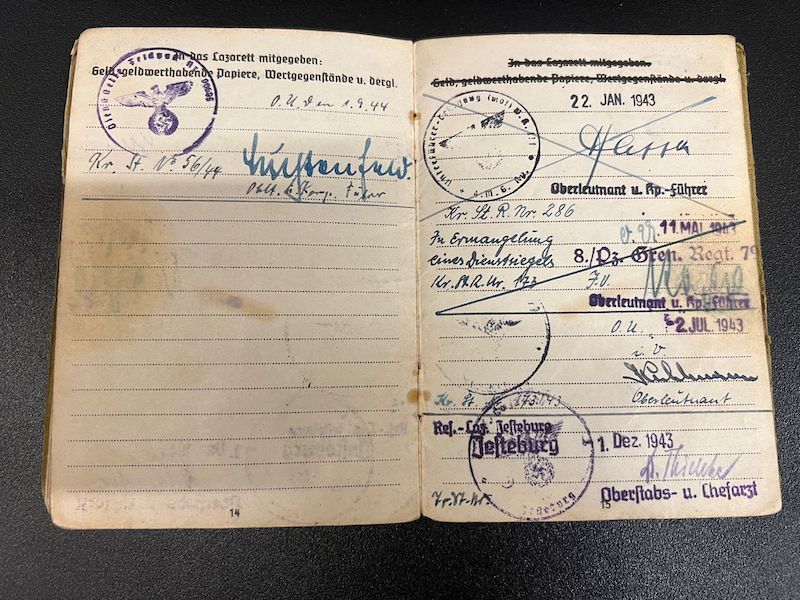 In das Lazarett mitgegeben:
Geld, geldwerthabende Papiere, Wertgegenstände u. dergl.
Dienststelle Feldpost Nr.
O.U. den 1.9.44
Kr. St. No 56/44
Oblt. u. Komp. Führer
14
In das Lazarett mitgegeben.
Geld, geldwerthabende Papiere, Wertgegenstände u. dergl.
22 JAN. 1943
Oberleutnant u. Kp.-Führer
Kr. St. R. Nr. 286
11 MAI 1943
In Ermangelung
eines Dienstsiegels
8./Pz. Gren. Regt. 79
Kr. St. R. Nr. 173
Oberleutnant u. Kp.-Führer
O.U.
2. JUL 1943
i.V
Oberleutnant
Res.-Laz. Jesteburg
Jesteburg
1. Dez. 1943
Oberstabs- u. Chefarzt
15